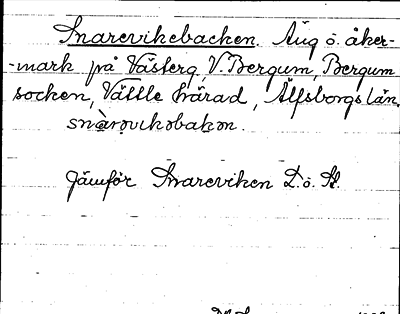 Snarevikebacken. Äng o. åker-
-mark på Västerg, V. Bergum, Bergum
socken, Vättle härad, Älfsborgs län.
snàrəvikəbakən.
Jämför Snareviken D. o. St.